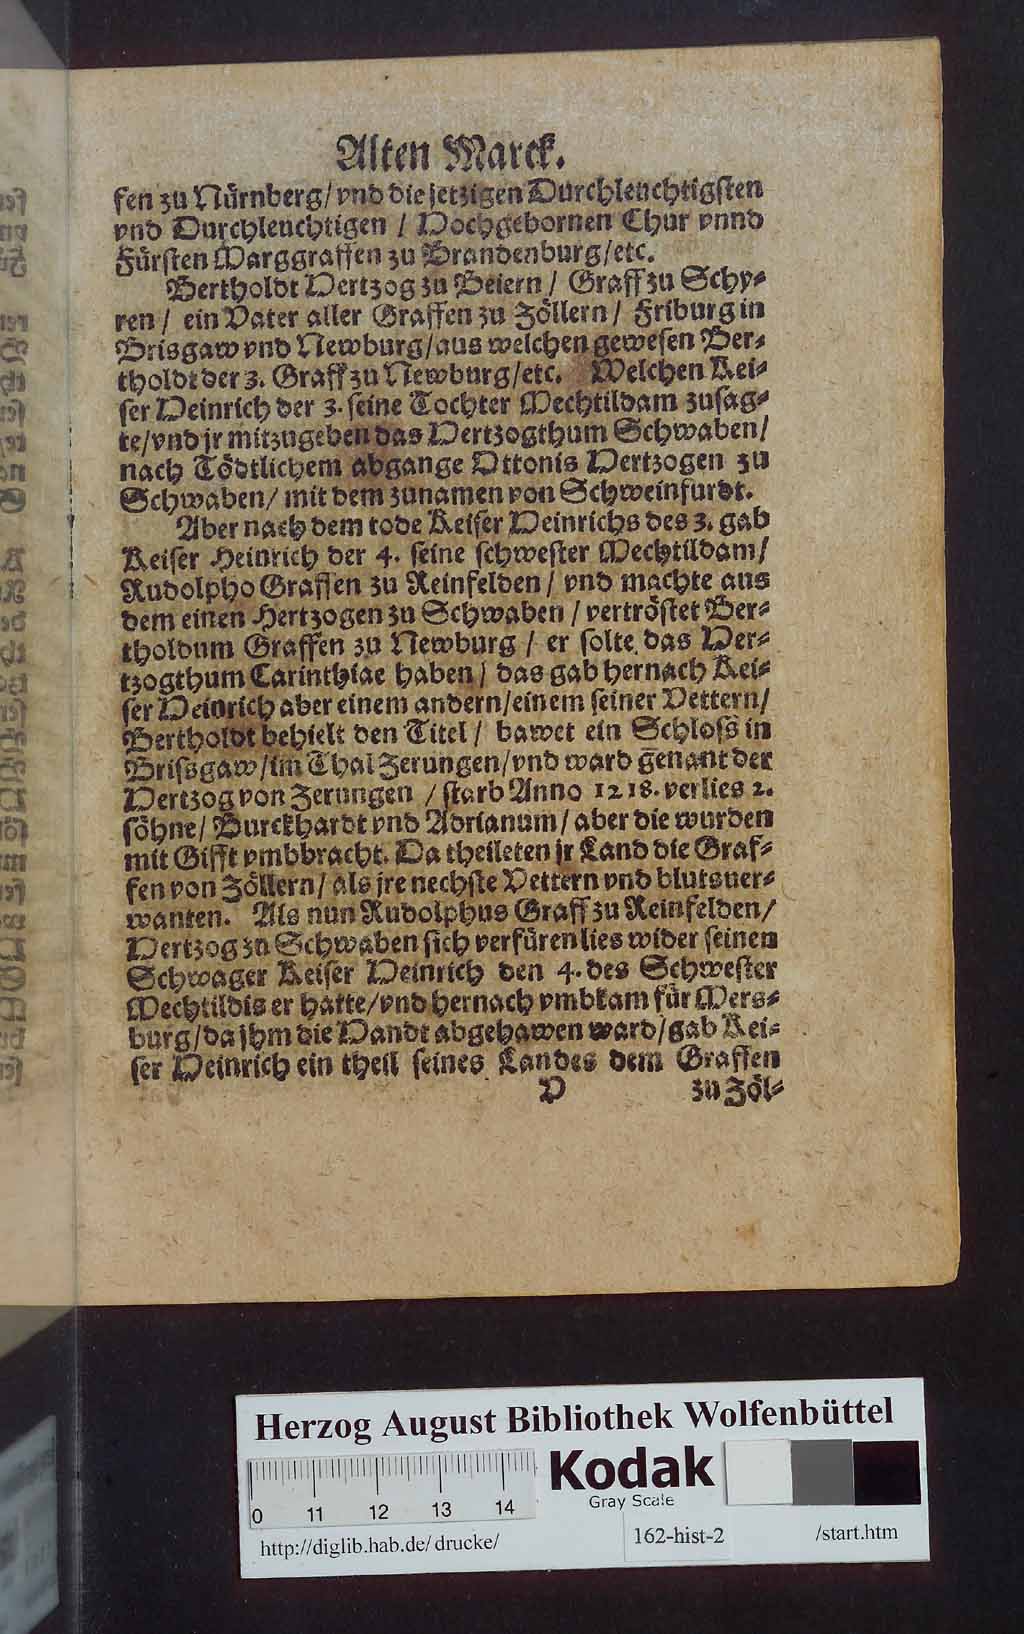 Alten Marck.
fen zu Nürnberg/ vnd die jetzigen Durchleuchtigsten
vnd Durchleuchtigen / Hochgebornen Chur vnnd
Fürsten Marggraffen zu Brandenburg/etc.
Bertholdt Hertzog zu Beiern / Graff zu Schy-
ren / ein Vater aller Graffen zu Zöllern / Friburg in
Brisgaw vnd Newburg/ aus welchen gewesen Ber-
tholdt der 3. Graff zu Newburg/etc. Welchen Kei-
ser Heinrich der 3. seine Tochter Mechtildam zusag-
te/ vnd jr mitzugeben das Hertzogthum Schwaben/
nach Tödtlichem abgange Ottonis Hertzogen zu
Schwaben/ mit dem zunamen von Schweinfurdt.
Aber nach dem tode Keiser Heinrichs des 3. gab
Keiser Heinrich der 4. seine schwester Mechtildam/
Rudolpho Graffen zu Reinfelden / vnd machte aus
dem einen Hertzogen zu Schwaben / vertröstet Ber-
tholdum Graffen zu Newburg / er solte das Her-
tzogthum Carinthiae haben / das gab hernach Kei-
ser Heinrich aber einem andern/ einem seiner Vettern/
Bertholdt behielt den Titel / bawet ein Schloss in
Brissgaw/ im Thal Zerungen/ vnd ward genant der
Hertzog von Zerungen / starb Anno 1218. verlies 2.
söhne/ Burckhardt vnd Adrianum/ aber die wurden
mit Gifft vmbbracht. Da theileten jr Land die Graf-
fen von Zöllern/ als jre nechste Vettern vnd blutsuer-
wanten. Als nun Rudolphus Graff zu Reinfelden/
Hertzog zu Schwaben sich verfüren lies wider seinen
Schwager Keiser Heinrich den 4. des Schwester
Mechtildis er hatte/ vnd hernach vmbkam für Mers-
burg/ da jhm die Handt abgehawen ward/ gab Kei-
ser Heinrich ein theil seines Landes dem Graffen
H zu Zöl-
Herzog August Bibliothek Wolfenbüttel
Kodak
Gray Scale
0 11 12 13 14
http://diglib.hab.de/drucke/ 162-hist-2 /start.htm